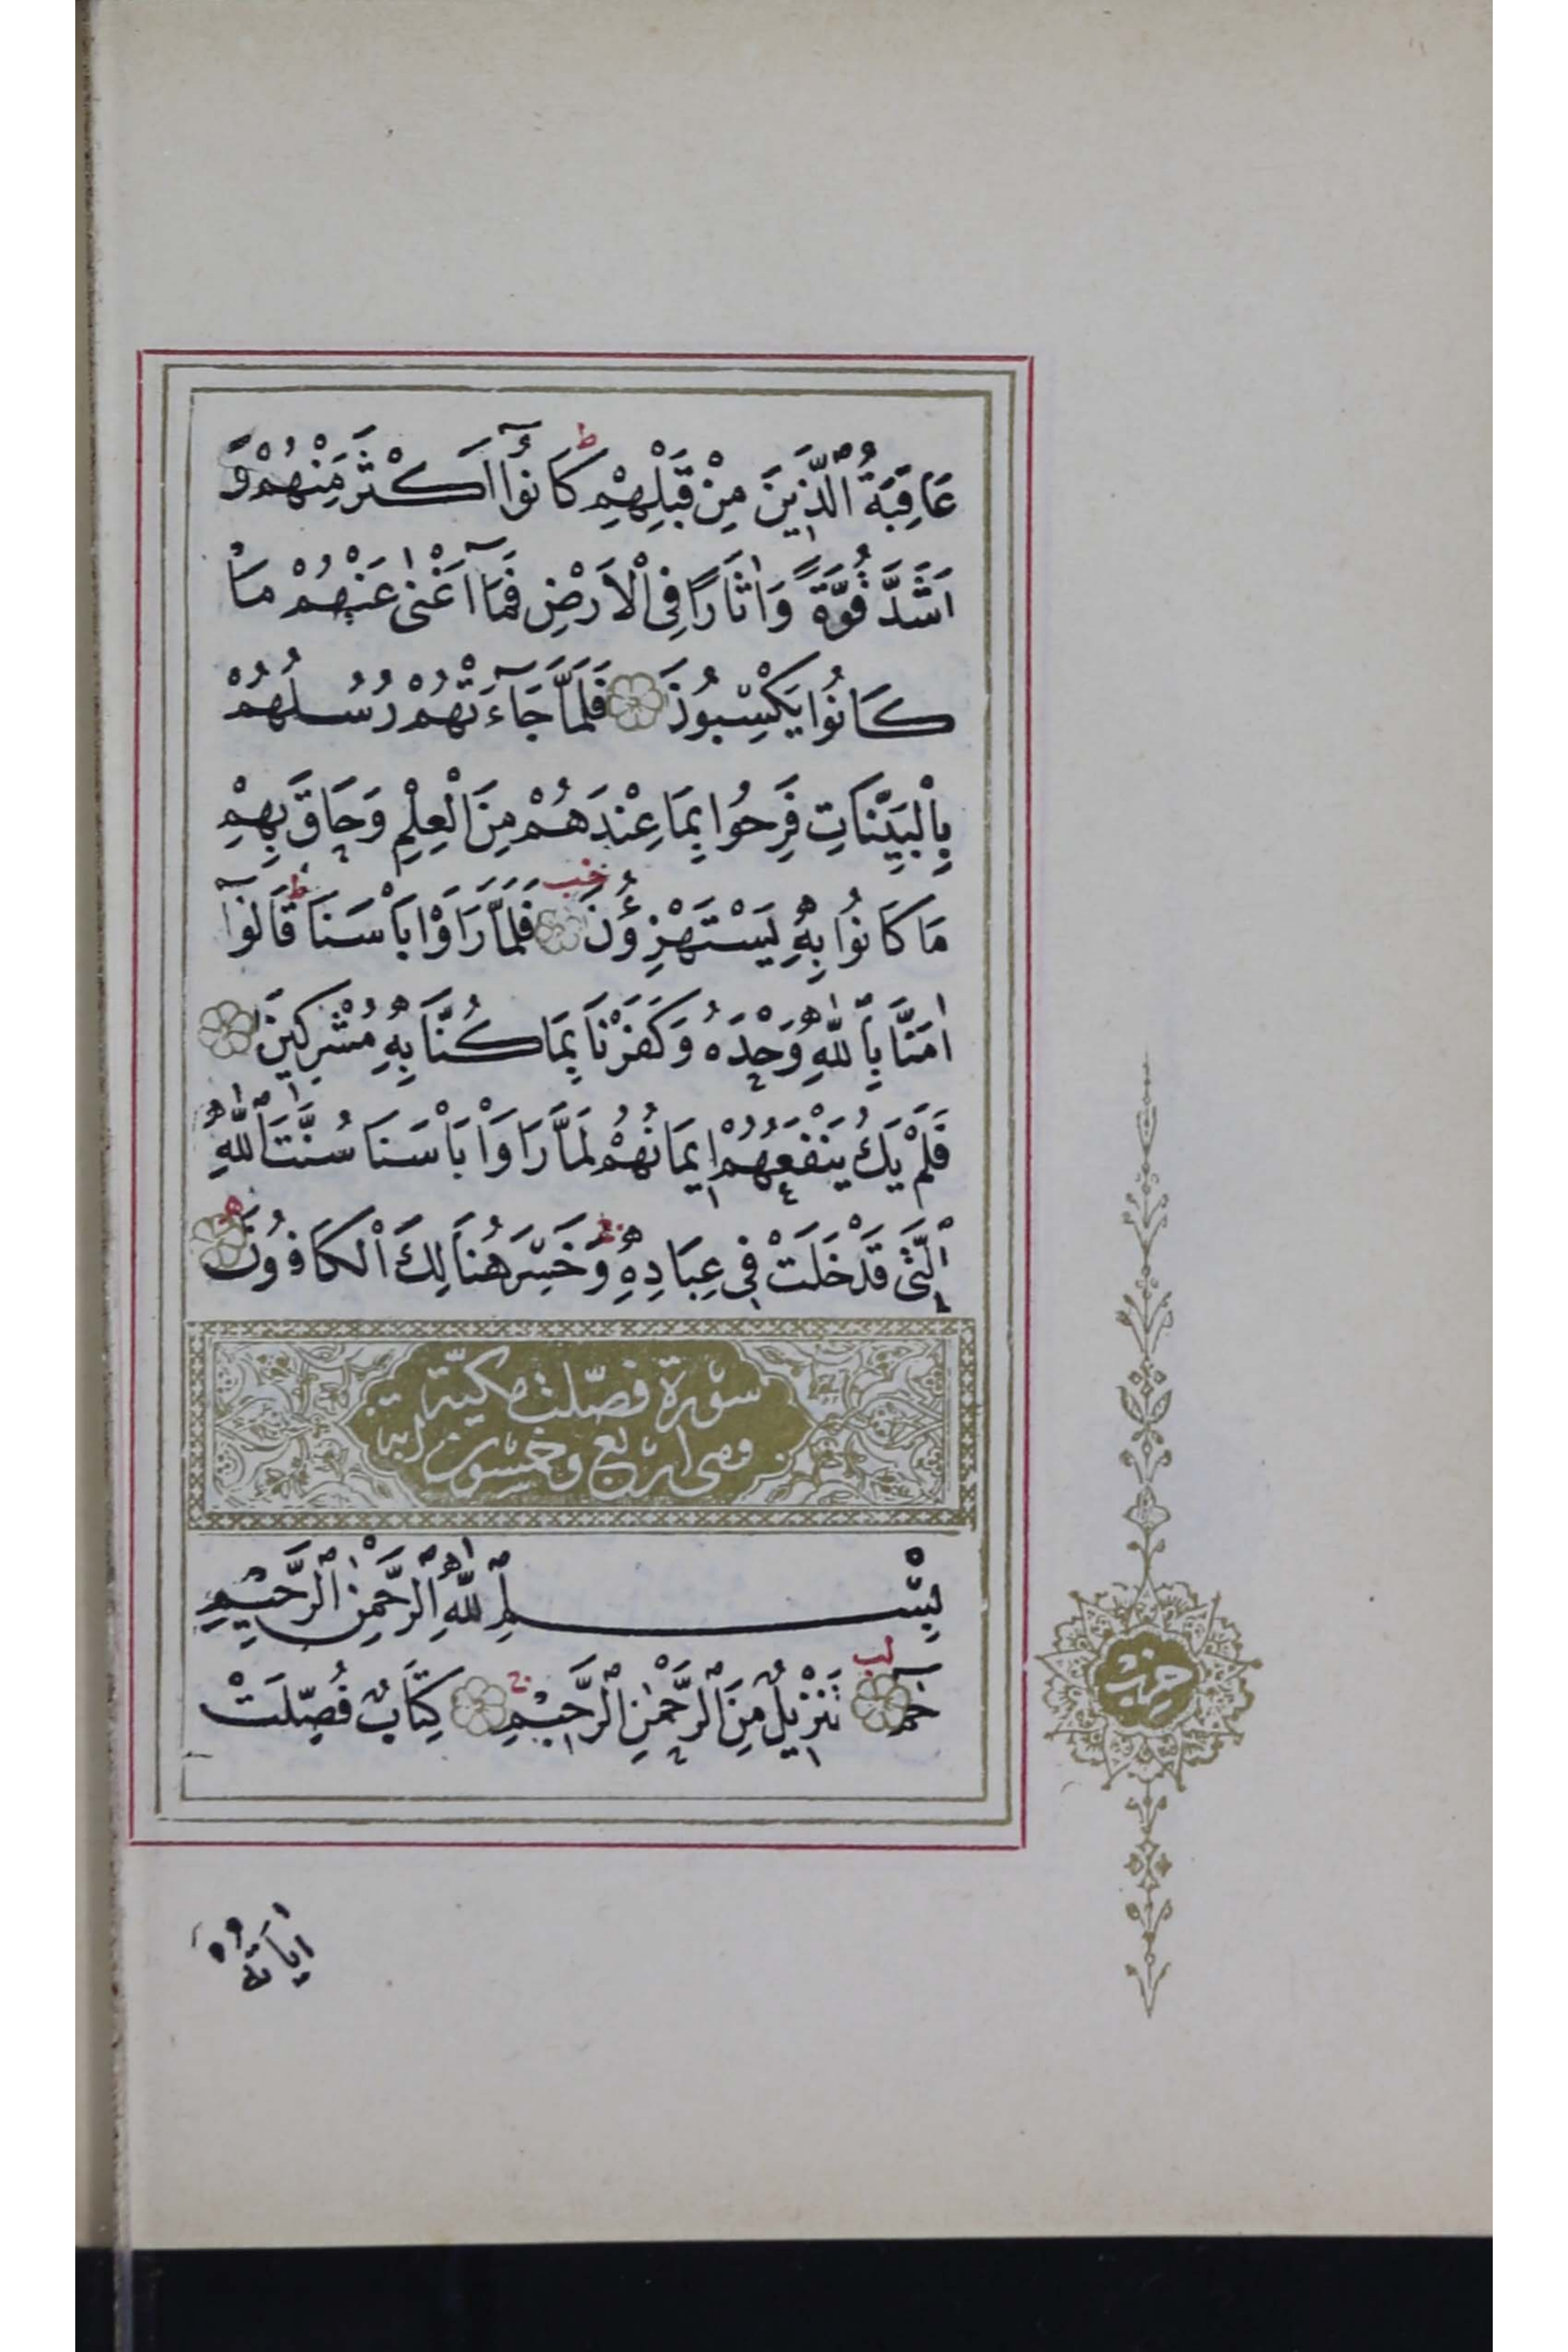 عَاقِبَةُ ٱلَّذِينَ مِنْ قَبْلِهِمْ ط كَانُوٓا اَكْثَرَ مِنْهُمْ وَ
اَشَدَّ قُوَّةً وَاٰثَارًا فِى ٱلْاَرْضِ فَمَٓا اَغْنٰى عَنْهُمْ مَا
كَانُوا يَكْسِبُونَ فَلَمَّا جَٓاءَتْهُمْ رُسُلُهُمْ
بِٱلْبَيِّنَاتِ فَرِحُوا بِمَا عِنْدَهُمْ مِنَ ٱلْعِلْمِ وَحَاقَ بِهِمْ
مَا كَانُوا بِهِ يَسْتَهْزِؤُنَ خب فَلَمَّا رَاَوْا بَاْسَنَا ط قَالُوٓا
اٰمَنَّا بِٱللّٰهِ وَحْدَهُ وَكَفَرْنَا بِمَا كُنَّا بِهِ مُشْرِكِينَ
فَلَمْ يَكُ يَنْفَعُهُمْ اِيمَانُهُمْ لَمَّا رَاَوْا بَاْسَنَا سُنَّتَ ٱللّٰهِ
ٱلَّتِى قَدْ خَلَتْ فِى عِبَادِهِ وَخَسِرَ هُنَالِكَ ٱلْكَافِرُونَ ه
سورة فصّلت مكيّة
وهى اربع وخمسون اية
بِسْمِ ٱللّٰهِ ٱلرَّحْمٰنِ ٱلرَّحِيمِ
حٰمٓ لب تَنْزِيلٌ مِنَ ٱلرَّحْمٰنِ ٱلرَّحِيمِ ج كِتَابٌ فُصِّلَتْ
حزب
اٰيَاتُهُ